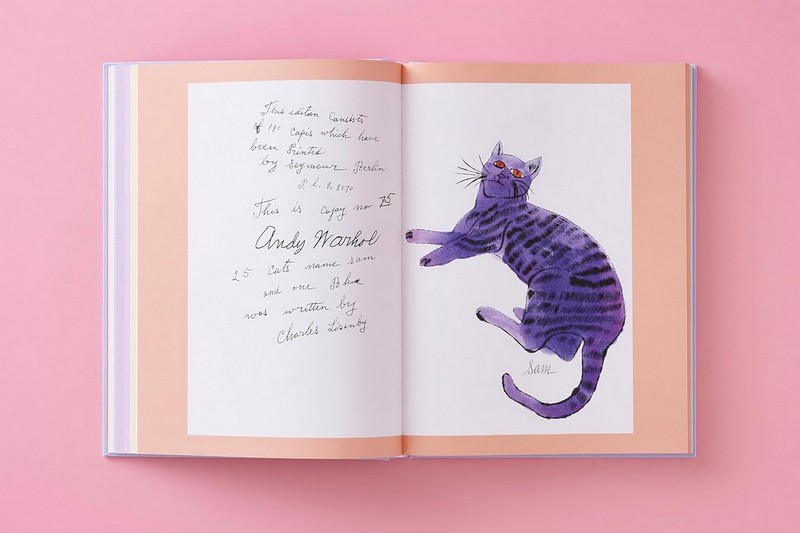 This editon Consists
of 190 Capis which have
been Printed
by Seymour Berlin
P. L. 8, 8070
This is Copay no 75
Andy Warhol
25 Cats name Sam
and one Blue
was written by
Charles Lisanby
Sam